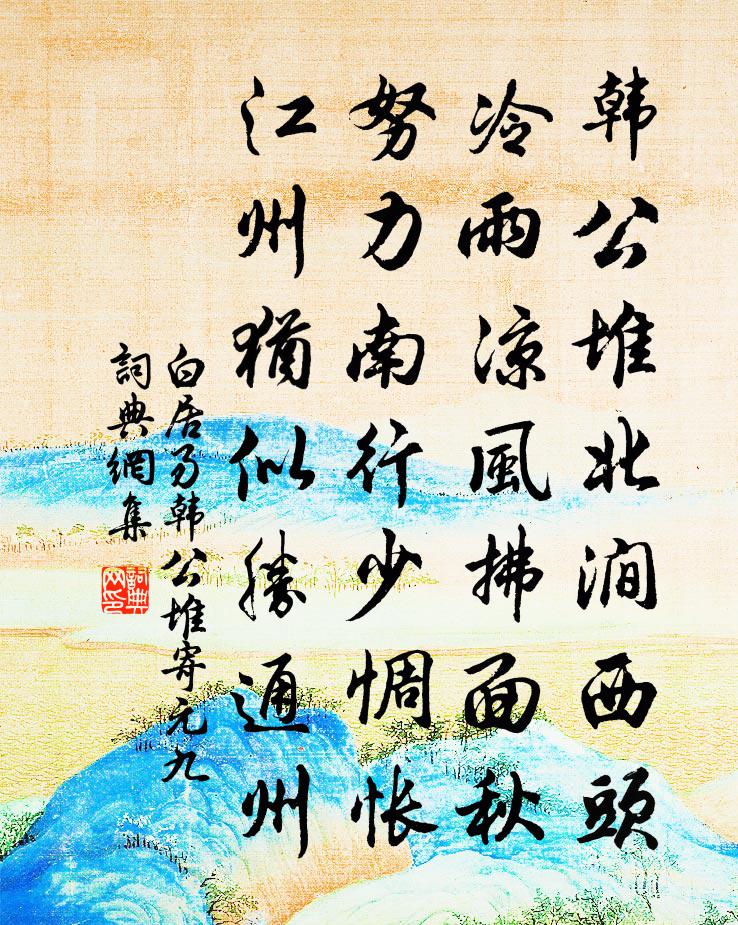 韩公堆北涧西頭
冷雨凉風拂面秋
努力南行少惆怅
江州猶似勝通州
白居易韩公堆寄元九
詞典網集
詞典网印